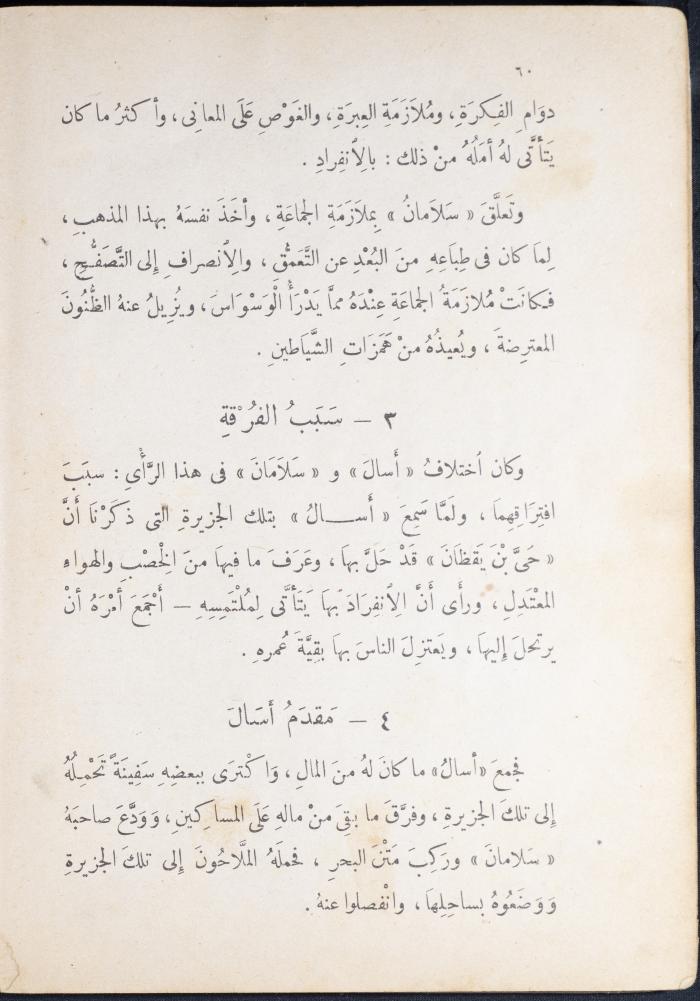 ٦٠
دوَامِ الفِكرَةِ، ومُلاَزَمَةِ العِبرَةِ، والغَوْصِ عَلَى المعانِى، وأكثرُ ما كان
يَتَأَتَّى لهُ أمَلُهُ منْ ذلك : بالِٱنفِرادِ .
وتَعلَّقَ « سَلَامانُ » بِملاَزَمَةِ الجماعَةِ، وأخَذَ نفسَهُ بهذا المذهبِ،
لِمَا كان فى طِباعِهِ منَ البُعْدِ عن التَّعمُّقِ، والِٱنصرافِ إلى التَّصَفُّحِ،
فكانَتْ مُلازمَةُ الجماعَةِ عِنْدَهُ ممَّا يَدْرَأُ الْوَسْوَاسَ، ويُزِيلُ عنهُ الظُّنُونَ
المعترِضةَ، ويُعيذُهُ منْ هَمَزَاتِ الشَّيَاطينِ .
٣ — سَبَبُ الفُرْقةِ
وكان ٱختلافُ « أَسالَ » و « سَلَامَانَ » فى هذا الرَّأْىِ : سببَ
افتِرَاقِهِما، ولَمَّا سَمِعَ « أَســالُ » بتلك الجزيرةِ التى ذكَرْنَا أَنَّ
« حَىَّ بْنَ يَقظَانَ » قَدْ حَلَّ بهَا، وعَرَفَ ما فيهَا منَ الْخِصْبِ والهواءِ
المعْتَدِلِ، ورأَى أَنَّ الِٱنفِرَادَ بهَا يَتَأَتَّى لِمُلْتَمِسِهِ — أَجْمَعَ أمْرَهُ أنْ
يرتحلَ إليهَا، ويَعتزِلَ الناسَ بهَا بقِيَّةَ عُمرهِ .
٤ — مَقدَمُ أَسَالَ
فجمعَ «أسالُ» ما كانَ لهُ منَ المالِ، وَاكْترَى ببعضِهِ سَفِينَةً تَحْمِلُهُ
إلى تلكَ الجزيرةِ، وفرَّقَ ما بقِىَ منْ مالهِ عَلَى المساكينِ، وَوَدَّعَ صاحبَهُ
« سَلامانَ » وركِبَ مَتْنَ البحرِ، فحملَهُ المَلَّاحُونَ إلى تلكَ الجزيرةِ
وَوَضَعُوهُ بساحِلِهَا، وانْفصلوا عنهُ .